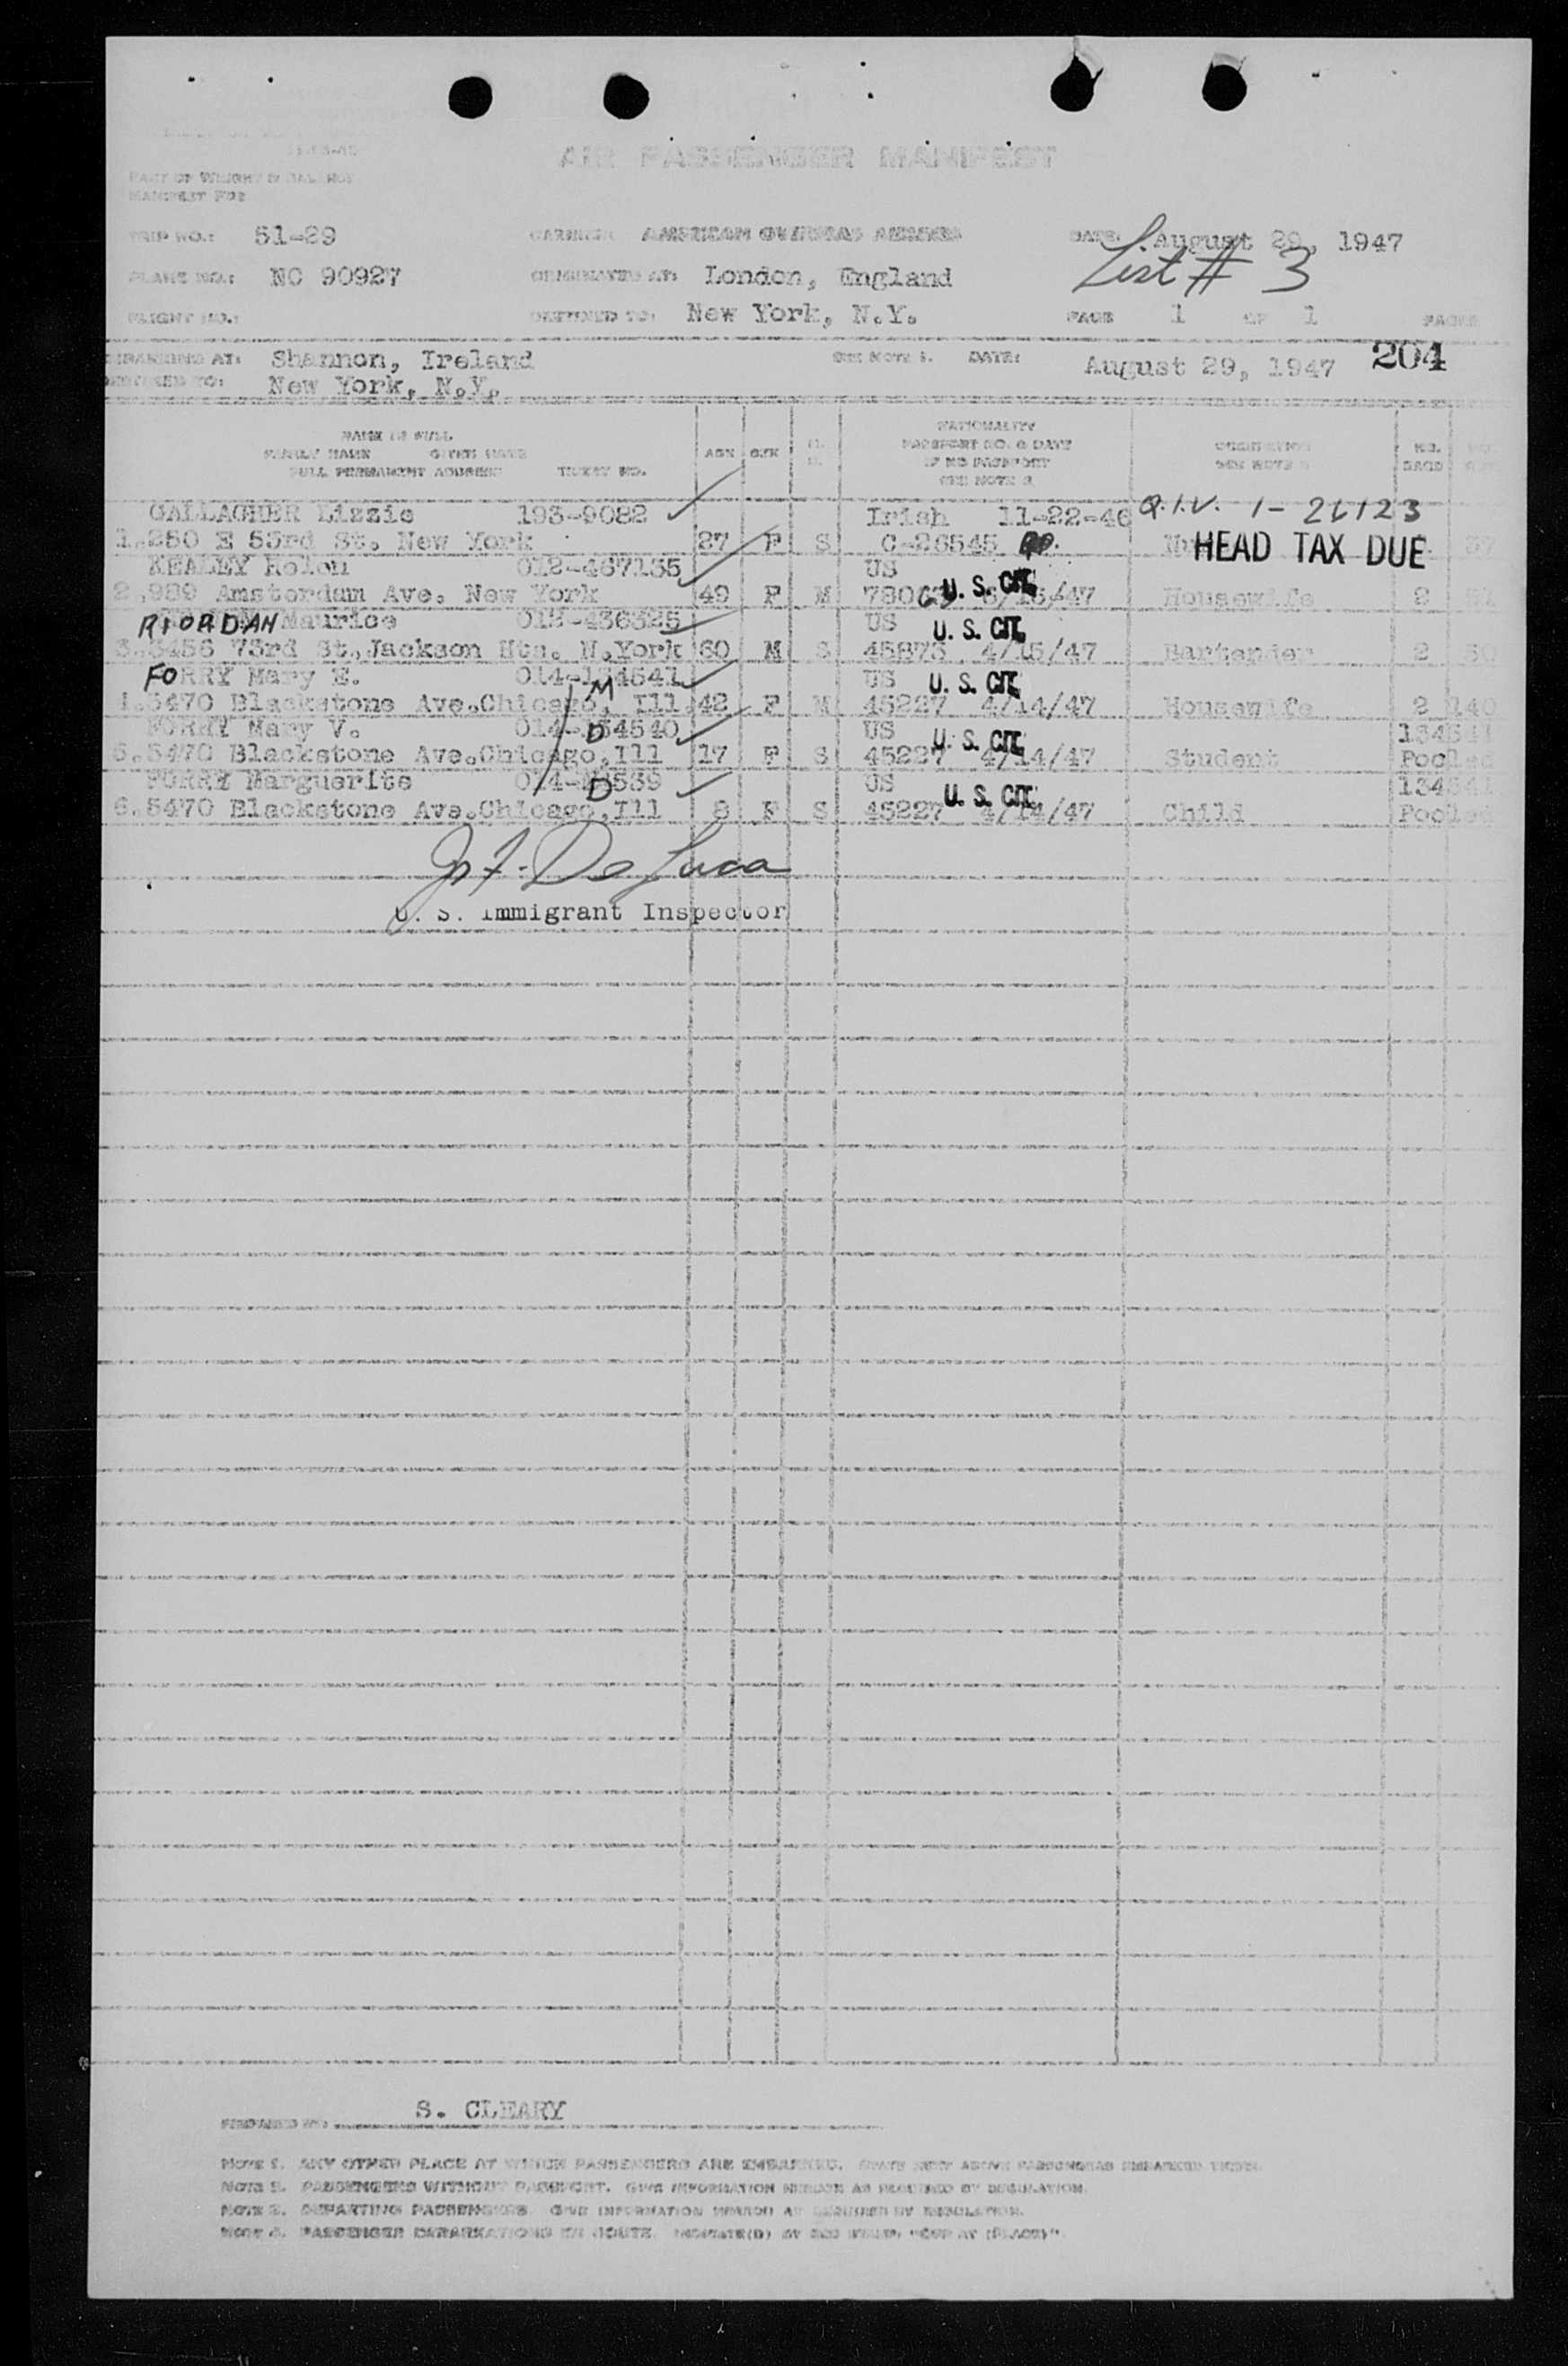 AIR PASSENGER MANIFEST
MANIFEST FOR
TRIP NO.: 51-29 CARRIER: AMERICAN OVERSEAS AIRLINES DATE: August 29, 1947
List # 3
PLANE NO.: NC 90927 ORIGINATED AT: London, England
FLIGHT NO.: DESTINED TO: New York, N.Y. PAGE 1 OF 1 PAGES
EMBARKING AT: Shannon, Ireland SEE NOTE 1. DATE: August 29, 1947 204
DESTINED TO: New York, N.Y.
NAME IN FULL
FAMILY NAME GIVEN NAME
FULL PERMANENT ADDRESS TICKET NO.
AGE SEX
NATIONALITY
PASSPORT NO. & DATE
IF NO PASSPORT
SEE NOTE 2
OCCUPATION
SEE NOTE 3
NO.
BAGS
GALLAGHER Lizzie 193-9082 Irish 11-22-46 Q.I.V. 1-26123
1.250 E 53rd St. New York 27 F S C-26545 HEAD TAX DUE
KEALEY Helen 012-467135 US
2.989 Amsterdam Ave. New York 49 F M U. S. CIT. Housewife 2
RIORDAN Maurice 012-436325 US
3.3456 73rd St.Jackson Hts. N.York 60 M S 45873 4/15/47 U. S. CIT. Bartender 2
FORRY Mary E. US
4.5470 Blackstone Ave.Chicago, Ill 42 F M 45227 4/14/47 U. S. CIT. Housewife 2 140
M
FORRY Mary V. US
5.5470 Blackstone Ave.Chicago,Ill 17 F S 45227 4/14/47 U. S. CIT. Student Pooled
D
FORRY Marguerite US
6.5470 Blackstone Ave.Chicago,Ill 8 F S 45227 4/14/47 U. S. CIT. Child Pooled
D
De Luca
U. S. Immigrant Inspector
PREPARED BY: S. CLEARY
NOTE 1. ANY OTHER PLACE AT WHICH PASSENGERS ARE EMBARKED.
NOTE 2. PASSENGERS WITHOUT PASSPORT. GIVE INFORMATION HEREON AS REQUIRED BY REGULATION.
NOTE 3. DEPARTING PASSENGERS. GIVE INFORMATION HEREON AS REQUIRED BY REGULATION.
NOTE 4. PASSENGER DEBARKATIONS EN ROUTE. "OFF AT (PLACE)".